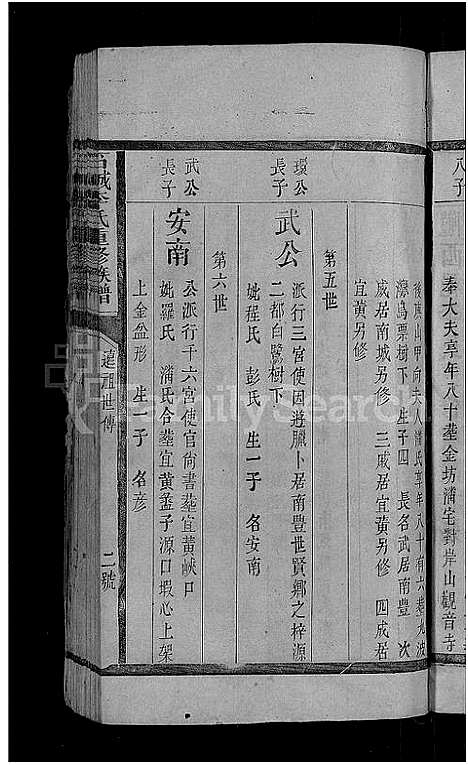 八子
奉大夫享年八十葬金坊浦宅對岸山觀音寺
後庚山甲向夫人潘氏享年八十有六葬九波
潭烏栗樹下 生子四 長名武居南豐 次
威居南城另修 三戚居宜黃另修 四成居
宜黃另修
第五世
環公
長子
武公
派行三宮使因蔣臘卜居南豐世賢鄉之梓源
二都白鷺樹下
妣程氏 彭氏 生一子 名安南
第六世
武公
長子
安南
公派行千六宮使官尚書葬宜黃峽口
妣羅氏 潘氏合葬宜黃孟子源口瑕心上架
上金盆形 生一子 名彥
石城李氏重修族譜
遠祖世傳
二號
FamilySearch